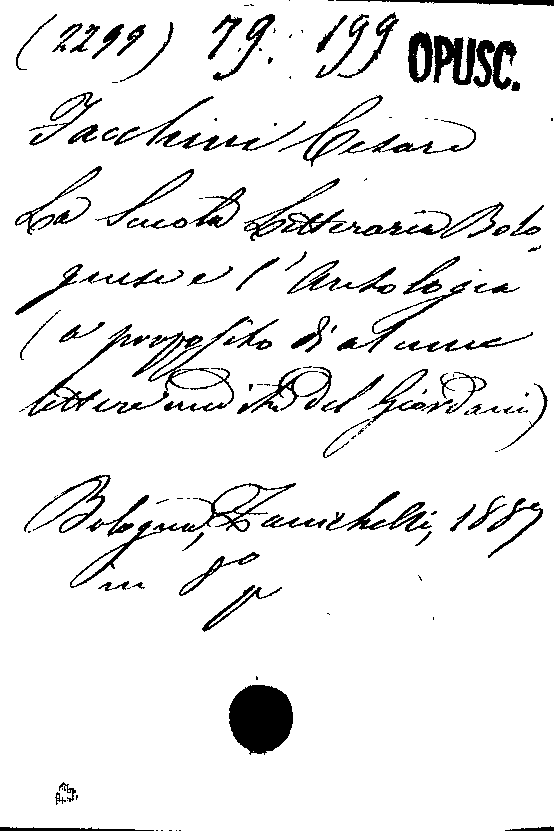 (2299) 79. 199 OPUSC.
Facchini Cesare
La Scuola Letteraria Bolo-
gnese e l'Antologia
(a proposito di alcune
lettere inedite del Giordani)
Bologna, Zanichelli, 1887
in 8º